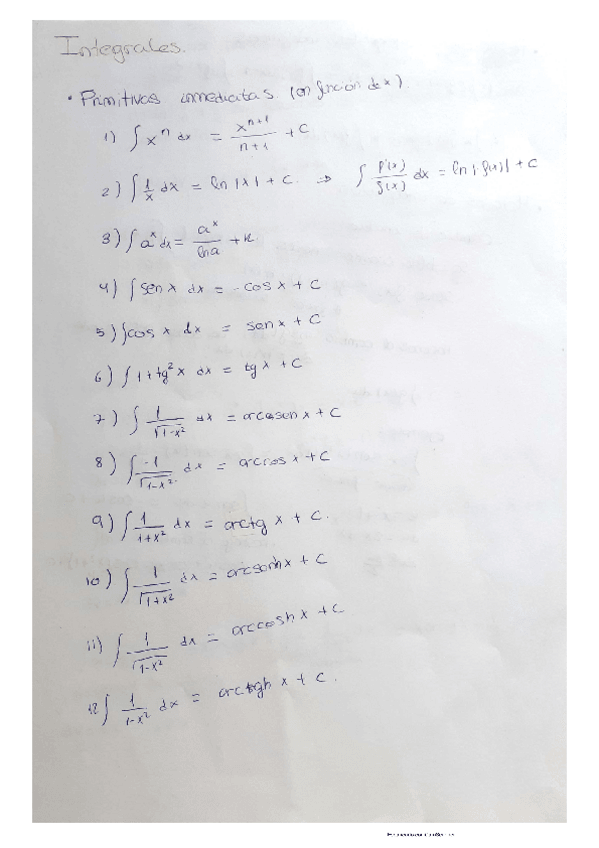 Integrales.
• Primitivas inmediatas (en función de x).
1) ∫ xⁿ dx = xⁿ⁺¹/(n+1) + C
2) ∫ 1/x dx = ln |x| + C. ⇒ ∫ f'(x)/f(x) dx = ln |f(x)| + C
3) ∫ aˣ dx = aˣ/ln a + K
4) ∫ sen x dx = -cos x + C
5) ∫ cos x dx = sen x + C
6) ∫ 1+tg² x dx = tg x + C
7) ∫ 1/√(1-x²) dx = arcosen x + C
8) ∫ -1/√(1-x²) dx = arccos x + C
9) ∫ 1/(1+x²) dx = arctg x + C.
10) ∫ 1/√(1+x²) dx = arcsenh x + C
11) ∫ -1/√(1-x²) dx = arccosh x + C
12 ∫ 1/(1-x²) dx = arctgh x + C.